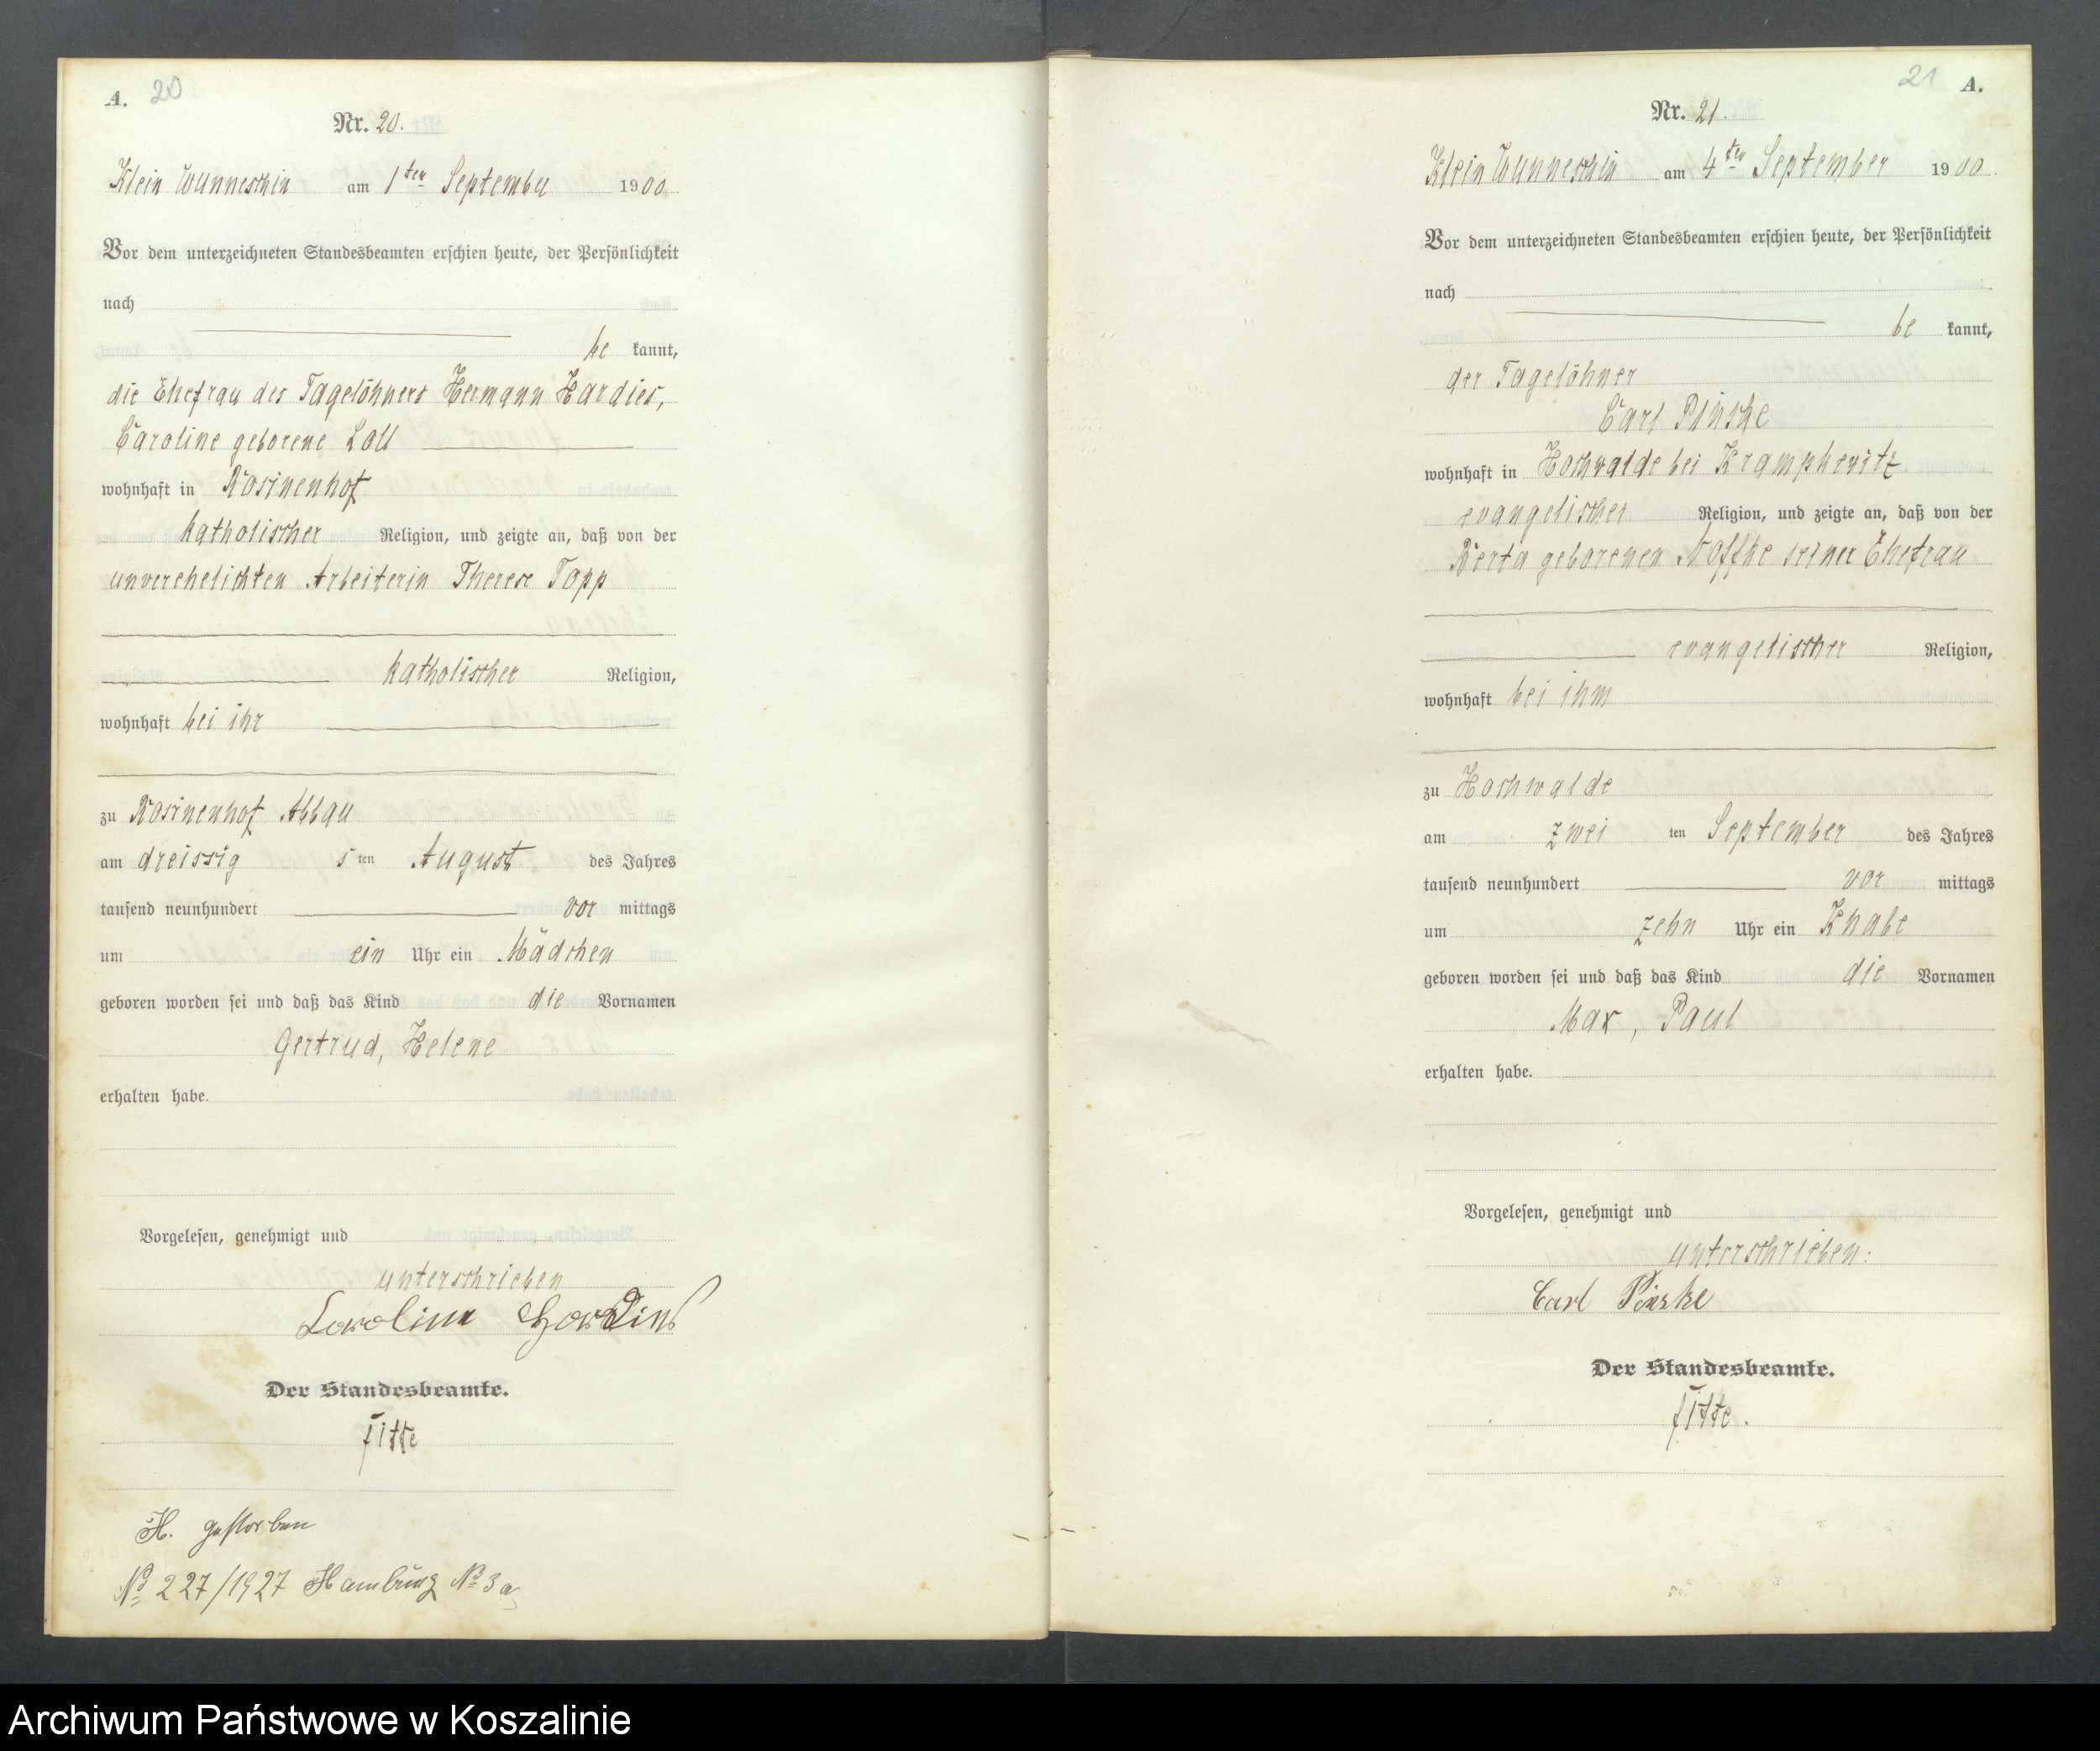 A. 20
Nr. 20.
Klein Wunneschin am 1ten September 1900
Vor dem unterzeichneten Standesbeamten erschien heute, der Persönlichkeit
nach
be kannt,
die Ehefrau des Tagelöhners Hermann Hardies,
Caroline geborene Loll
wohnhaft in Rosinenhof
katholischer Religion, und zeigte an, daß von der
unverehelichten Arbeiterin Therese Topp
katholischer Religion,
wohnhaft bei ihr
zu Rosinenhof Abbau
am dreissig sten August des Jahres
tausend neunhundert vor mittags
um ein Uhr ein Mädchen
geboren worden sei und daß das Kind die Vornamen
Gertrud, Helene
erhalten habe.
Vorgelesen, genehmigt und
unterschrieben
Caroline
Der Standesbeamte.
Fitte
H. gestorben
No 227/1927 Hamburg No 3a
21 A.
Nr. 21.
Klein Wunneschin am 4ten September 1900.
Vor dem unterzeichneten Standesbeamten erschien heute, der Persönlichkeit
nach
be kannt,
der Tagelöhner
Carl Pinske
wohnhaft in Hochwalde bei Krampkewitz
evangelischer Religion, und zeigte an, daß von der
Berta geborenen Noffke seiner Ehefrau
evangelischer Religion,
wohnhaft bei ihm
zu Hochwalde
am zwei ten September des Jahres
tausend neunhundert vor mittags
um zehn Uhr ein Knabe
geboren worden sei und daß das Kind die Vornamen
Max, Paul
erhalten habe.
Vorgelesen, genehmigt und
unterschrieben:
Carl Pinske
Der Standesbeamte.
Fitte.
Archiwum Państwowe w Koszalinie